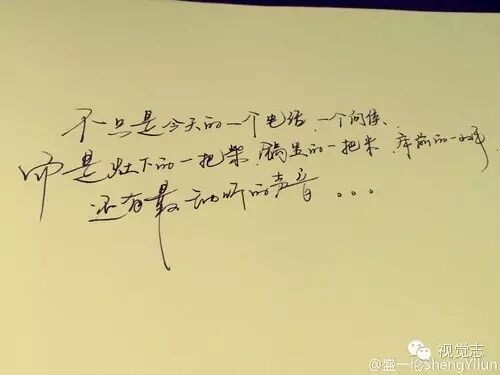 不只是今天的一个电话、一个问候、
而是灶下的一把柴,锅里的一把米,床前的一
还有最动听的声音。。。
视觉志
@盛一伦ShengYilun